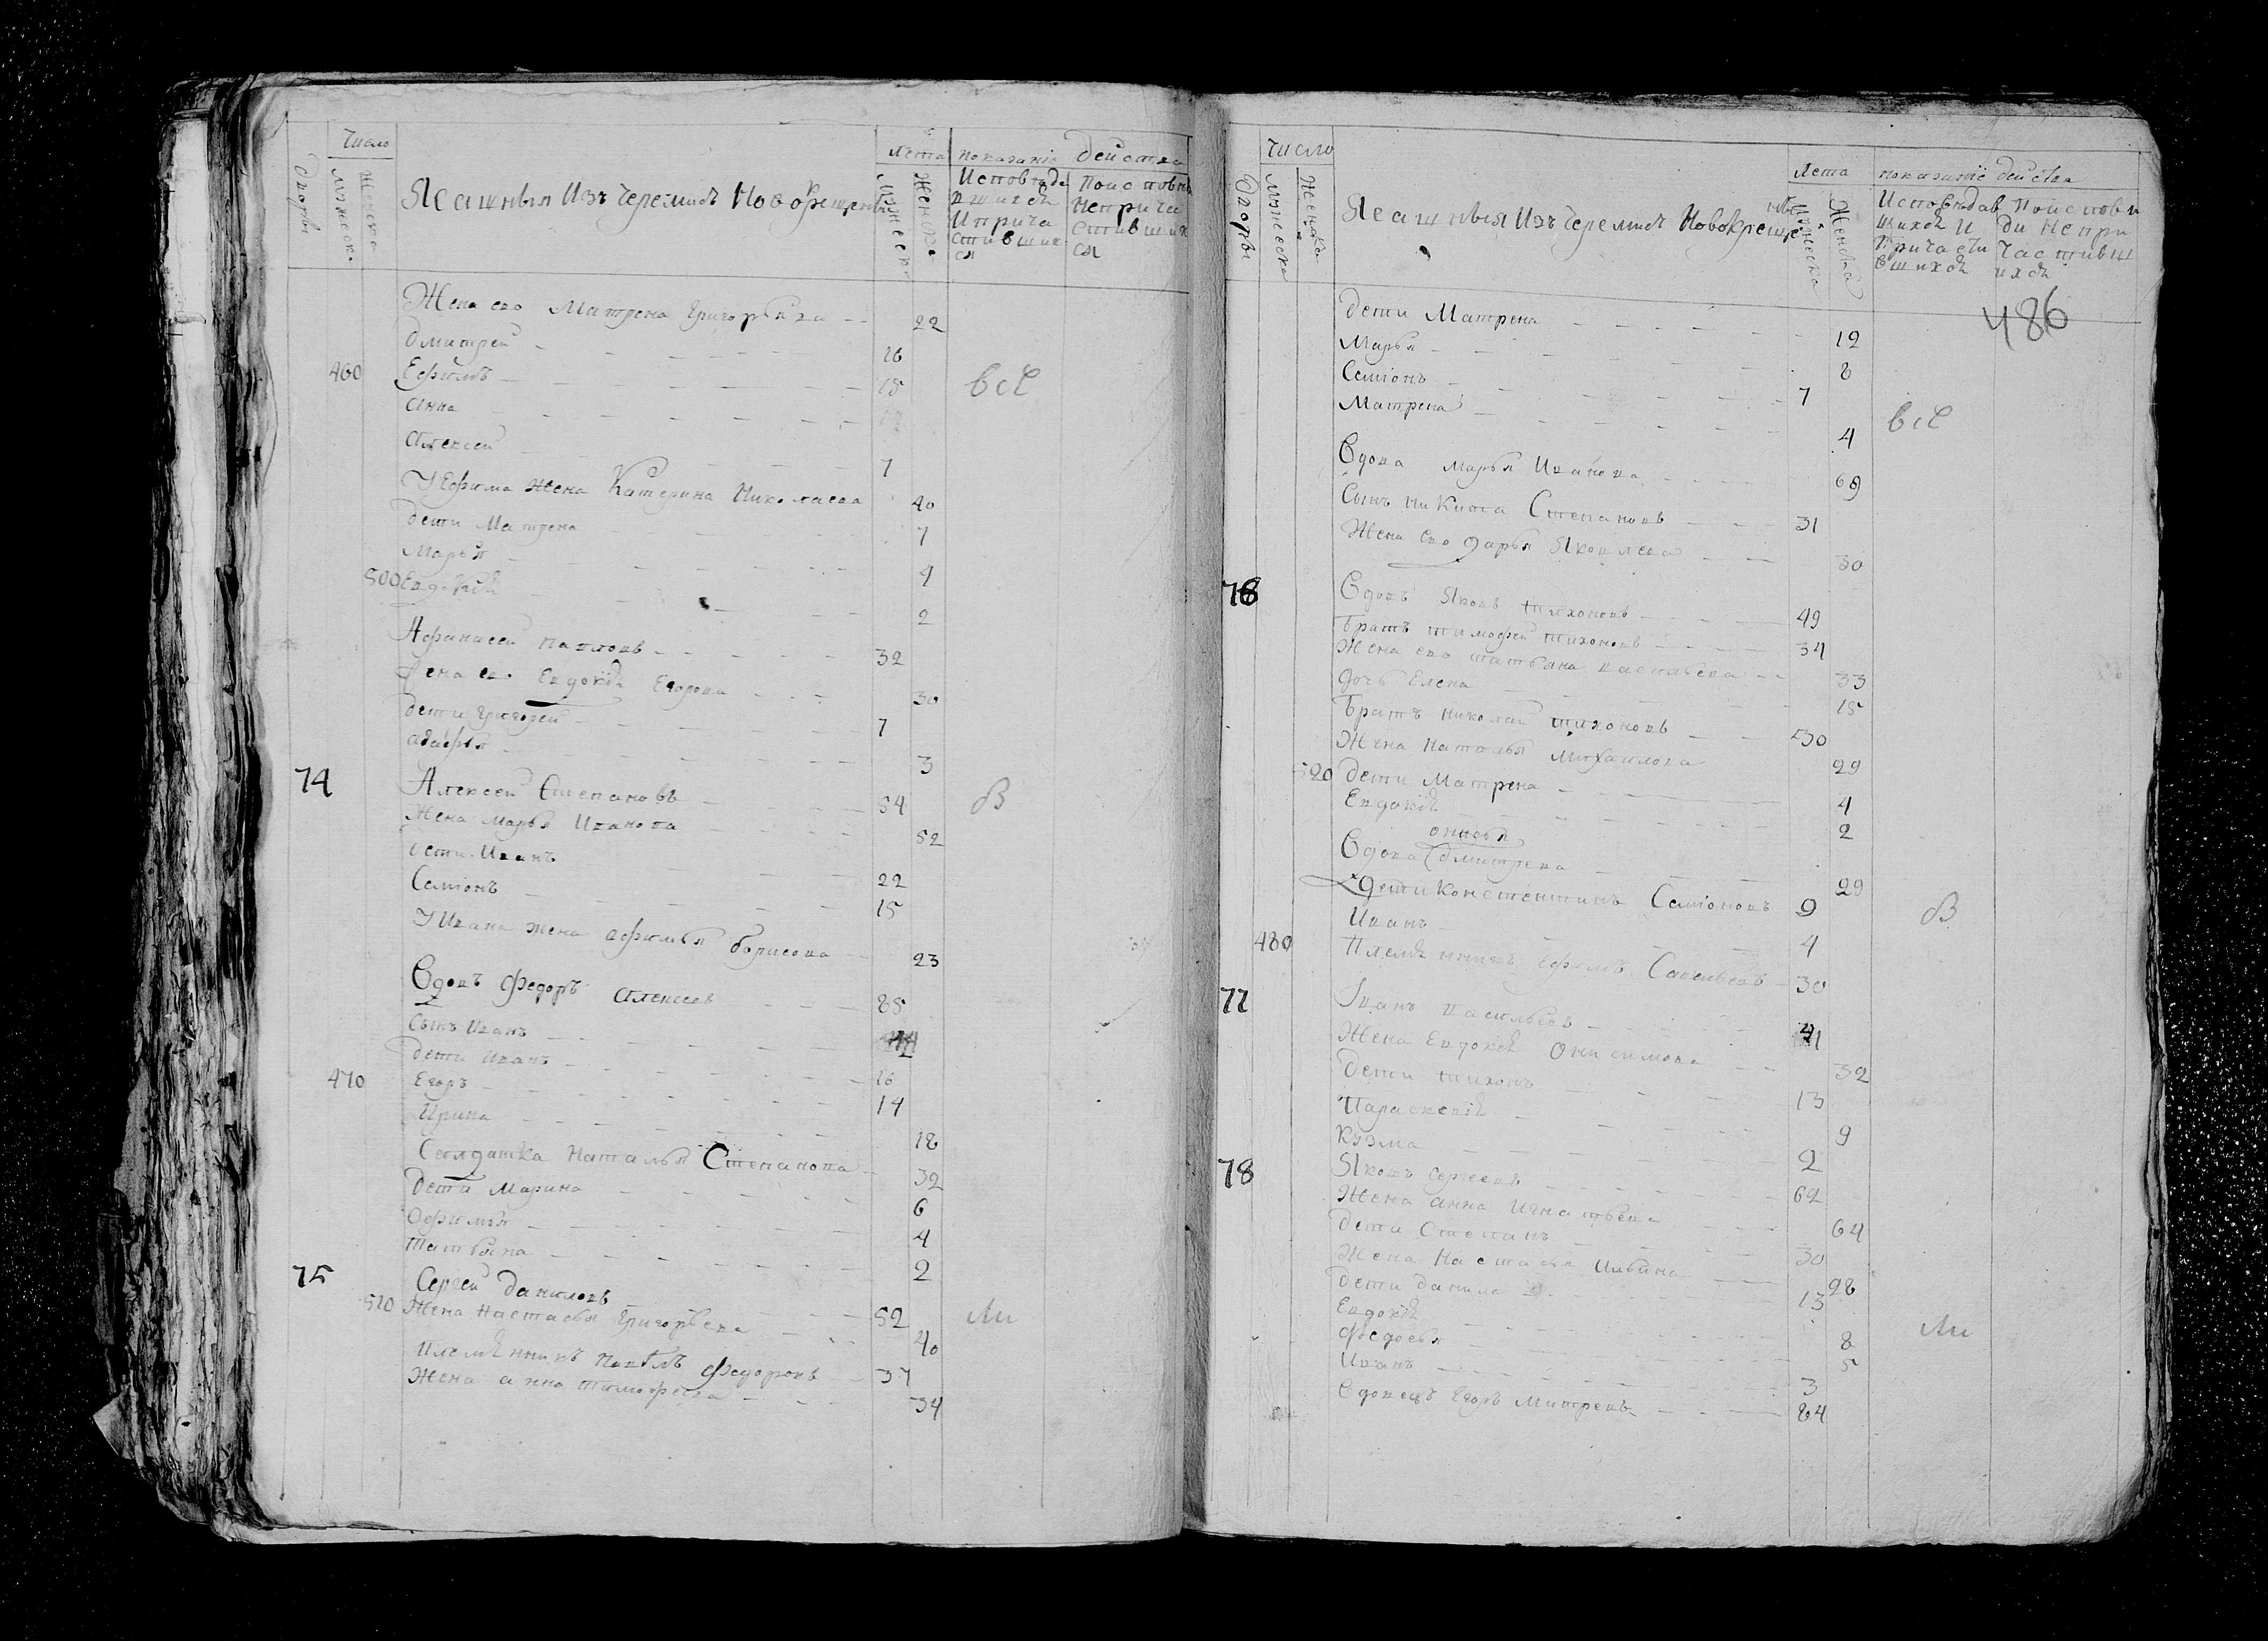 Число
Лета показание действа
Дворы
мужеска
женска
Ясашныя Изъ черемисъ Новокрещены
мужеска
женска
Исповеда
вшихся
Ипричa
стивших
ся
Поисповед
Неприча
стивших
ся
Жена ево Матрена Григорьева 22
Дмитрей 16
460 Ефимъ 15 всѣ
Анна
Алексей 7
У Ефима жена Катерина Николаева 40
Дети Матрена 7
Марья 4
500 Евдокия 2
Афанасей Павловъ 32
Жена ево Евдокия Егорова 30
Дети Григорей 7
Агафья 3
74 Алексей Степановъ 54 В
Жена Марья Иванова 52
Дети Иванъ 22
Семионъ 15
У Ивана жена Афимья Борисова 23
Вдовъ Федоръ Алексеевъ 85
Сынъ Иванъ
Дети Иванъ 16
470 Егоръ 14
Ирина 18
Салдатка Наталья Степанова 32
Дети Марина 6
Офимья 4
Татьяна 2
75 Сергей Даниловъ 52 Ли
510 Жена Настасья Григорьева 40
Племѣнникъ Павелъ Федоровъ 37
Жена Анна Тимофеева 34
Число
Лета показание действа
Дворы
мужеска
Женска
Ясашныя Изъ Черемисъ Новокрещены
мужеска
Женска
Исповедав
шихся И
Причасти
вшихся
Поиспове
ди Непри
частивш
ихся
486
Дети Матрена 12
Марья 8
Семионъ 7
Матрена 4 всѣ
Вдова Марья Иванова 69
Сынъ Никита Степановъ 31
Жена Ево Дарья Яковлева 30
76 Вдовъ Яковъ Тихоновъ 49
Братъ Тимофей Тихоновъ 34
Жена ево Татьяна Васильева 33
Дочь Елена 15
Братъ Николай Тихоновъ 30
Жена Наталья Михайлова 29
520 Дети Матрена 4
Евдокия 2
Вдова Дмитрева 29
Дети Констентинъ Семионовъ 9 В
Иванъ 4
480 Племѣнникъ Ефимъ Савельевъ 30
77 Иванъ Васильевъ
Жена Евдокия Онисимова 32
Дети Тихонъ 13
Параскевия 9
Кузма 2
78 Яковъ Сергеевъ 62
Жена Анна Игнатьева 64
Дети Степанъ 30
Жена Настасья Ильина 28
Дети Данила 13
Евдокия 8 Ли
Федосья 5
Иванъ 3
Вдовецъ Егоръ Митревъ 84